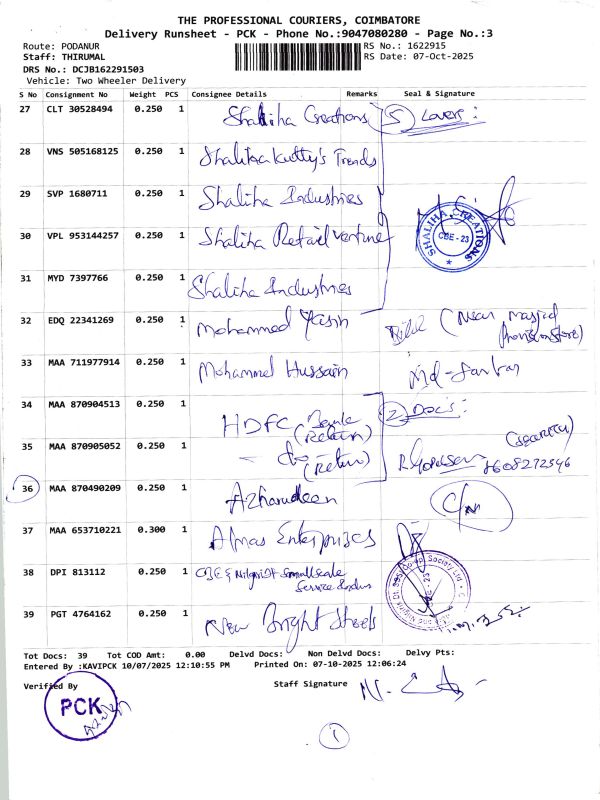 THE PROFESSIONAL COURIERS, COIMBATORE
Delivery Runsheet - PCK - Phone No.:9047080280 - Page No.:3
Route: PODANUR RS No.: 1622915
Staff: THIRUMAL RS Date: 07-Oct-2025
DRS No.: DCJB162291503
Vehicle: Two Wheeler Delivery
S No Consignment No Weight PCS Consignee Details Remarks Seal & Signature
27 CLT 30528494 0.250 1 Shaliha Creations 5) Covers:
28 VNS 505168125 0.250 1 Shalihakutty's Trends
29 SVP 1680711 0.250 1 Shaliha Industries
SHALIHA CREATIONS
CBE - 23
30 VPL 953144257 0.250 1 Shaliha Retail venture
31 MYD 7397766 0.250 1 Shaliha Industries
32 EDQ 22341269 0.250 1 Mohammed Yasin (Near masjid
33 MAA 711977914 0.250 1 Mohammed Hussain
34 MAA 870904513 0.250 1 HDFC Bank (Return) 2) Docs:
35 MAA 870905052 0.250 1 - do - (Return) (security) 9608272546
36 MAA 870490209 0.250 1 Azharudeen
37 MAA 653710221 0.300 1 Almas Enterprises
38 DPI 813112 0.250 1 CBE & Nilgiri Dt Small Scale
Service Indus
39 PGT 4764162 0.250 1 New Bright Steels
Tot Docs: 39 Tot COD Amt: 0.00 Delvd Docs: Non Delvd Docs: Delvy Pts:
Entered By :KAVIPCK 10/07/2025 12:10:55 PM Printed On: 07-10-2025 12:06:24
Verified By Staff Signature
PCK
1